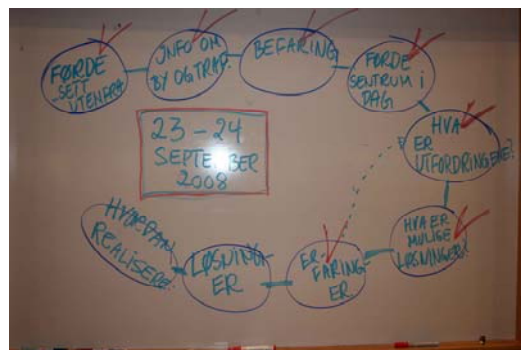 FØRDE
- SETT
UTENFRA
INFO OM
BY OG TRAP.
BEFARING
FØRDE
SENTRUM I
DAG
HVA
ER
UTFORDRINGENE?
HVA ER
MULIGE
LØSNINGER?
ER-
FARING-
ER
LØSNING-
ER
HVORDAN
REALISERE?
23 - 24
SEPTEMBER
2008